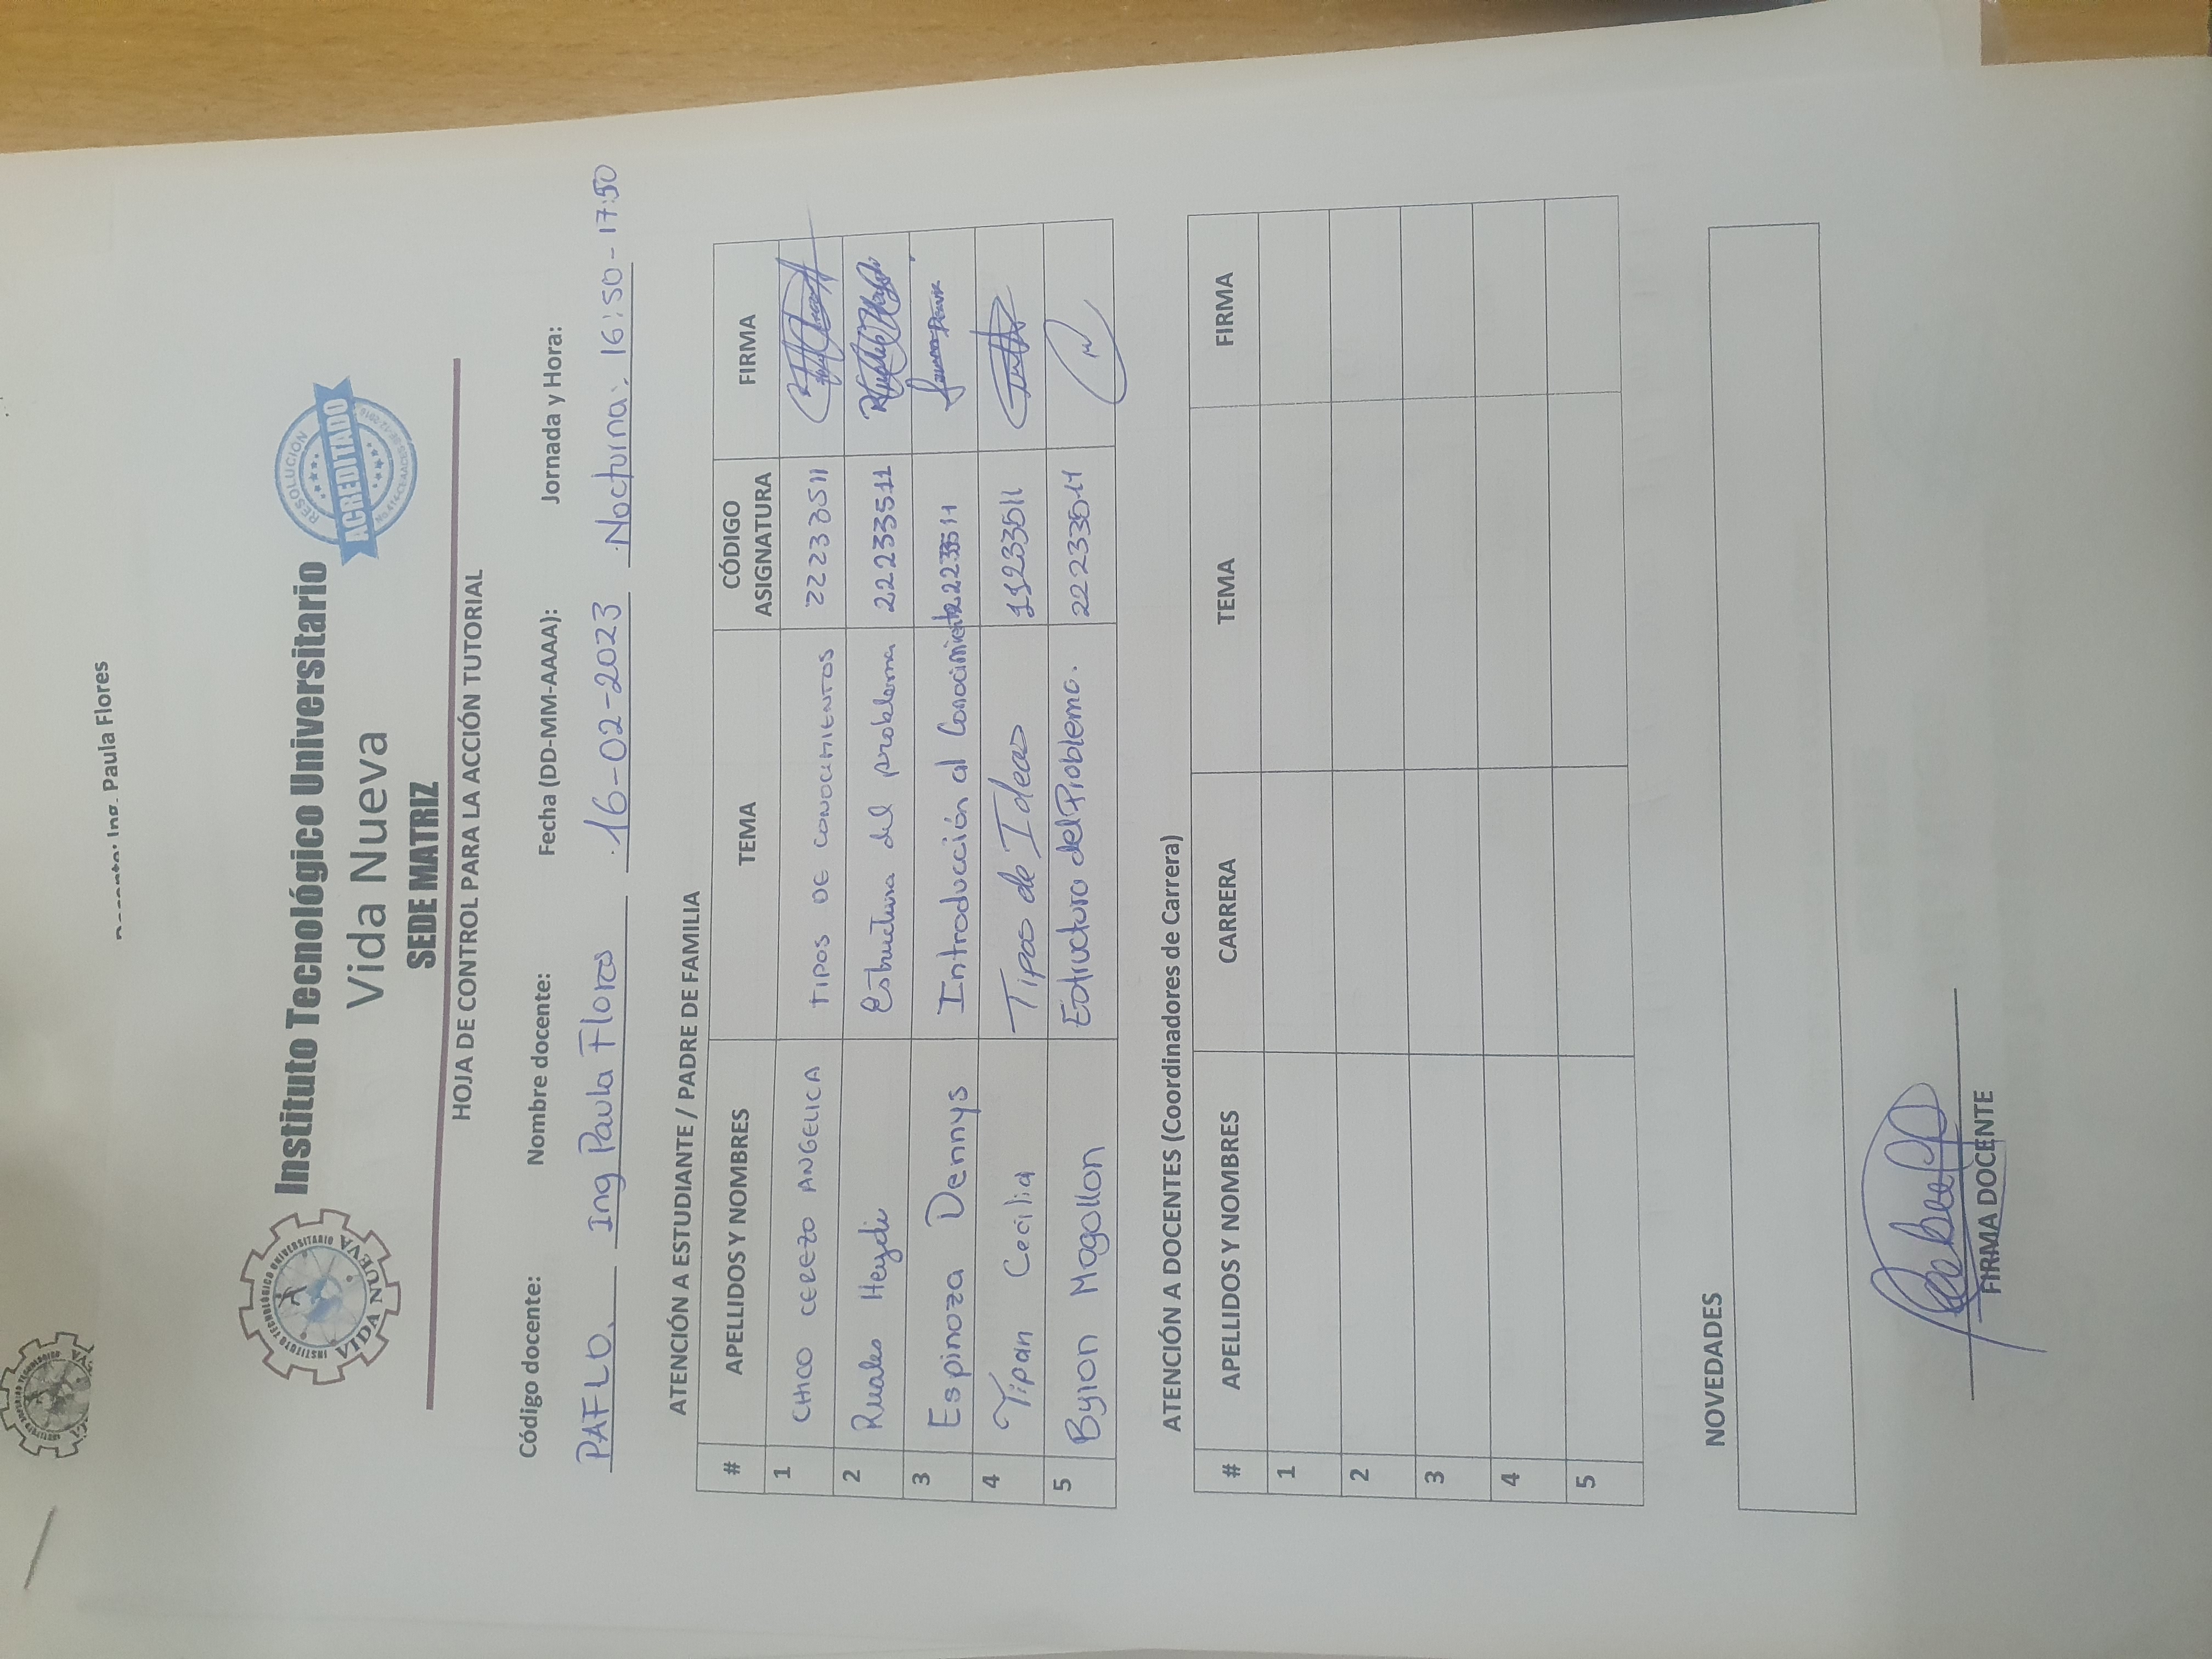 Docente: Ing. Paula Flores
INSTITUTO TECNOLÓGICO UNIVERSITARIO
VIDA NUEVA
Instituto Tecnológico Universitario
Vida Nueva
SEDE MATRIZ
RESOLUCIÓN
ACREDITADO
HOJA DE CONTROL PARA LA ACCIÓN TUTORIAL
Código docente: Nombre docente: Fecha (DD-MM-AAAA): Jornada y Hora:
PAFLO. Ing Paula Flores 16-02-2023 Nocturna: 16:50-17:50
ATENCIÓN A ESTUDIANTE / PADRE DE FAMILIA
# APELLIDOS Y NOMBRES TEMA CÓDIGO ASIGNATURA FIRMA
1 CHICO CEREZO ANGELICA TIPOS DE CONOCIMIENTOS 22233511
2 Ruales Heydi Estructura del problema 22233511
3 Espinoza Dennys Introducción al Conocimiento 22233511
4 Tipan Cecilia Tipos de Ideas 11233511
5 Byron Mogollon Estructura del Problema. 22233511
ATENCIÓN A DOCENTES (Coordinadores de Carrera)
# APELLIDOS Y NOMBRES CARRERA TEMA FIRMA
1
2
3
4
5
NOVEDADES
FIRMA DOCENTE